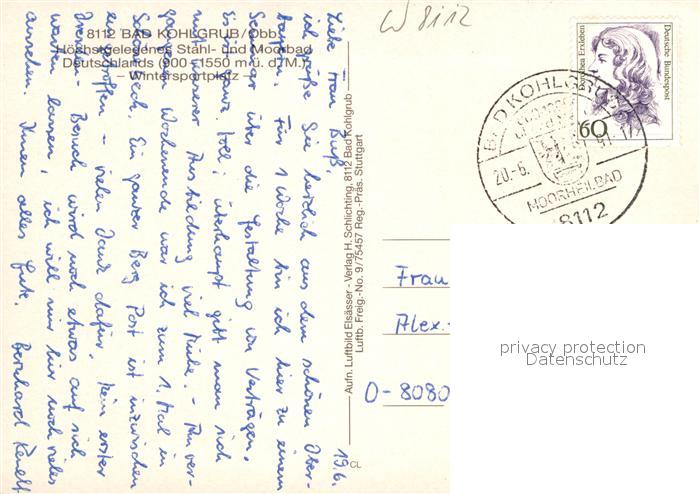 8112 BAD KOHLGRUB/Obb.
Höchstgelegenes Stahl- und Moorbad
Deutschlands (900 - 1550 m ü. d. M.)
– Wintersportplatz –
W 8112
19.6.
Liebe Frau Buß,
ich grüße Sie herzlich aus dem schönen Ober-
bayern. Für 1 Woche bin ich hier zu einem
Seminar über die Gestaltung von Verträgen.
Einfach toll; überhaupt gibt man sich
mit unserer Ausbildung viel Mühe. - Am ver-
gangenen Wochenende war ich zum 1. Mal in
Ein ganzer Berg Post ist inzwischen
eingetroffen - vielen Dank dafür. Mein erster
Dresden-Besuch wird noch etwas auf sich
warten lassen; ich will mir hier noch vieles
ansehen. Ihnen alles Gute. Bernhard
Aufn. Luftbild Elsässer - Verlag H. Schlichting, 8112 Bad Kohlgrub
Luftb. Freig.-No. 9/75457 Reg.-Präs. Stuttgart
CL
Dorothea Erxleben
Deutsche Bundespost
60
BAD KOHLGRUB
20.-6.
91
MOORHEILBAD
8112
Frau
Alex.-
O-8080
privacy protection
Datenschutz